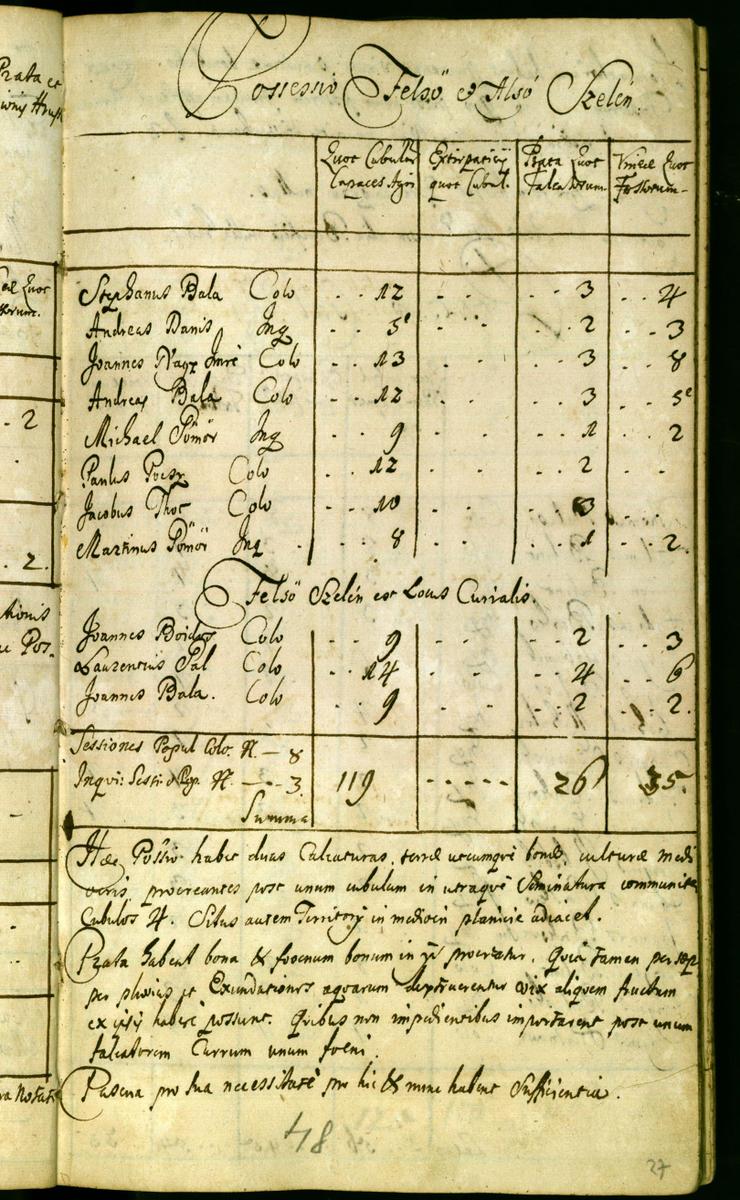 Prata et
Possessio Felső et Alsó Szelén.
Quot Cubulor Capaces Agri | Extirpaticij quot Cubul. | Prata Quot Falcatorum | Vineæ Quot Fossorum
Stephanus Bala Colo . . 12 . . . . 3 . . 4
Andreas Danis Inq . . 5 . . . . 2 . . 3
Joannes Nagy Imre Colo . . 13 . . . . 3 . . 8
Andreas Bala Colo . . 12 . . . . 3 . . 5
Michael Pömör Inq . . 9 . . . . 1 . . 2
Paulus Colo . . 12 . . . . 2 . .
Jacobus Thot Colo . . 10 . . . . 3 . .
Martinus Pömör Inq . . 8 . . . . 1 . . 2.
Felső Szelén est Locus Curialis.
Joannes Colo . . 9 . . . . 2 . . 3
Laurentius Pal Colo . . 14 . . . . 4 . . 6
Joannes Bala. Colo . . 9 . . . . 2 . . 2.
Sessiones Popul Colo. N. — 8
Inqvi: Sessio Pop. N. — 3. 119 - - - - - 26 35.
Summa
Hæc Possio habet duas Calcaturas, terræ utcumque bonæ, culturæ medi
ocris procreantes post unum cubulum in utraque Seminatura communiter
Cubulos 4. Situs autem Territorij in mediocri planicie adiacet.
Prata habent bona & foenum bonum in ijs procreatur. Quia tamen per sæp
per pluvias et Exundationes aquarum vix aliquem fructum
ex ipsis habere possunt. Quibus non impedientibus importarent post unum
falcatorem Currum unum foeni.
Pascua pro sua necessitate pro hic & nunc habent Sufficientia.
48
27
2
2.